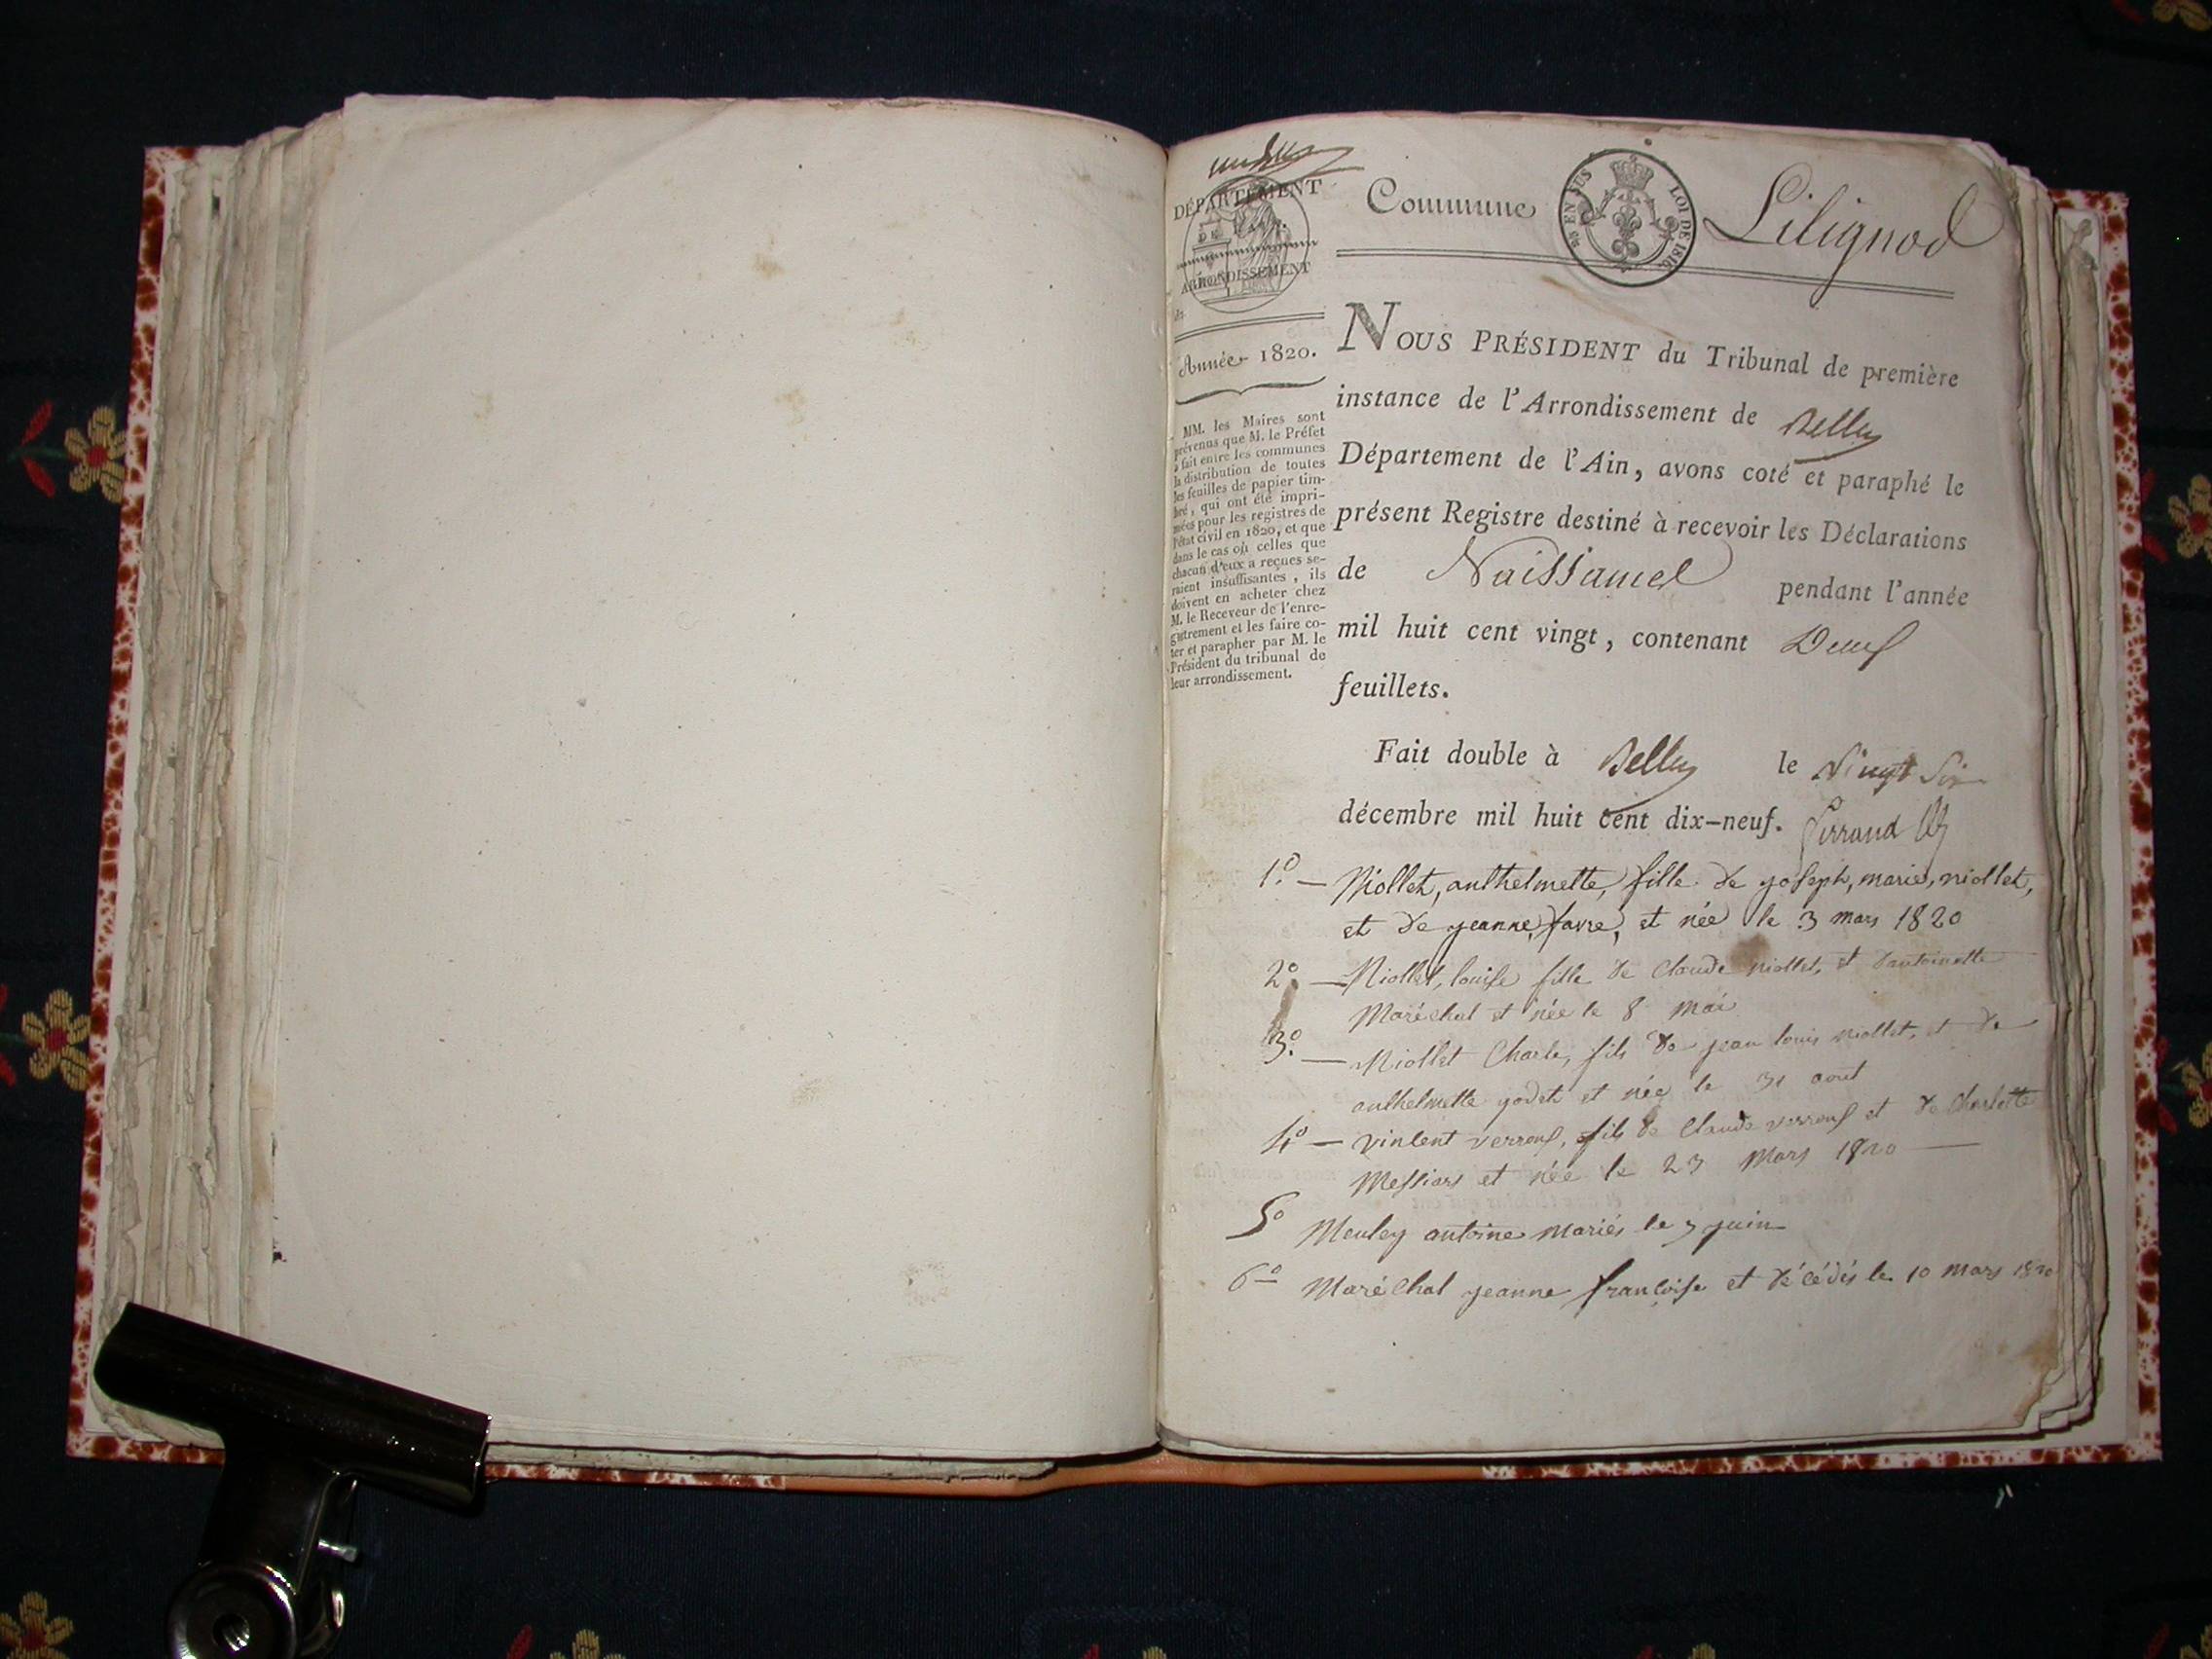 DÉPARTEMENT
DE L'AIN.
ARRONDISSEMENT
de
Année 1820.
MM. les Maires sont
prévenus que M. le Préfet
a fait entre les communes
la distribution de toutes
les feuilles de papier tim-
bré, qui ont été impri-
mées pour les registres de
l'état civil en 1820, et que
dans le cas où celles que
chacun d'eux a reçues se-
raient insuffisantes, ils
doivent en acheter chez
M. le Receveur de l'enre-
gistrement et les faire co-
ter et parapher par M. le
Président du tribunal de
leur arrondissement.
Commune Lilignod
EN SUS LOI DE 1816.
NOUS PRÉSIDENT du Tribunal de première
instance de l'Arrondissement de Belley
Département de l'Ain, avons coté et paraphé le
présent Registre destiné à recevoir les Déclarations
de Naissances pendant l'année
mil huit cent vingt, contenant Deux
feuillets.
Fait double à Belley le Vingt Six
décembre mil huit cent dix-neuf.
1.º — Niollet, anthelmette, fille de joseph, marie, niollet,
et de jeanne, favre, et née le 3 mars 1820
2º. — Niollet, louise fille de Claude niollet, et d'antoinette
Maréchal et née le 8 mai
3º. — Niollet Charle, fils de jean louis niollet, et de
anthelmette godet et née le 31 aout
4º — vincent verroux, fils de Claude verroux et de Charlotte
et née le 23 Mars 1820
5º Meuley antoine mariés le 7 juin
6º Maréchal jeanne françoise et décédés le 10 mars 1820